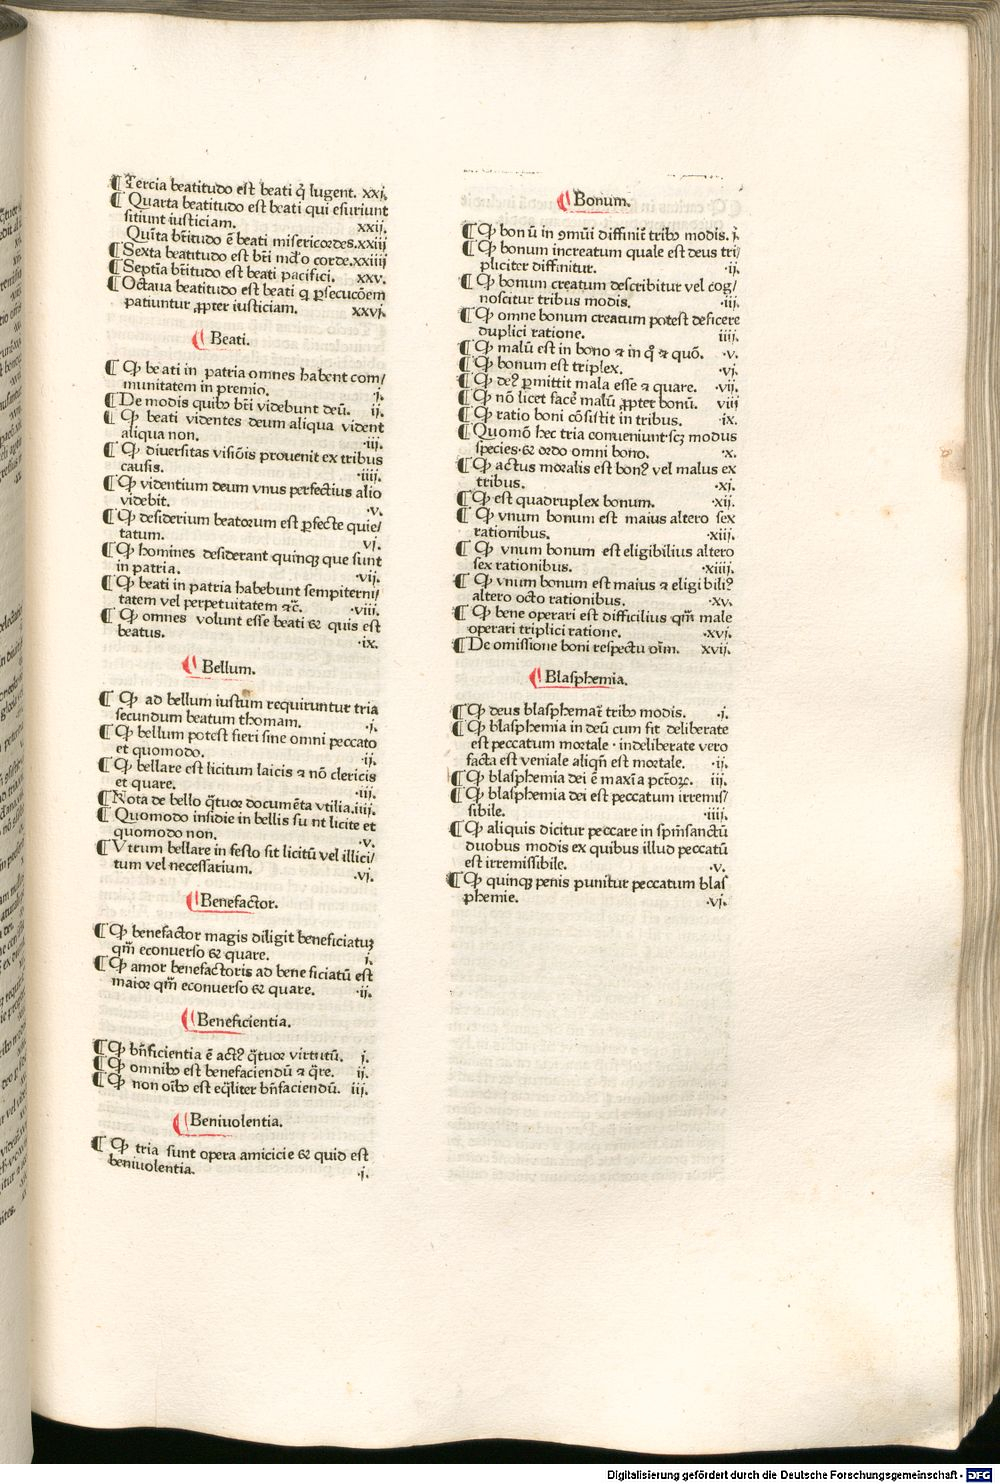 ¶ Tercia beatitudo est beati q̄ lugent. xxj.
¶ Quarta beatitudo est beati qui esuriunt
sitiunt iusticiam. xxij.
Quīta bt̄itudo ē beati misericordes.xxiij
¶ Sexta beatitudo est bt̄i mūdo corde.xxiiij
¶ Septīa bt̄itudo est beati pacifici. xxv.
¶ Octaua beatitudo est beati q ꝑsecucōem
patiuntur ꝓpter iusticiam. xxvj.
¶ Beati.
¶ Ꝙ beati in patria omnes habent com/
munitatem in premio. j.
¶ De modis quibꝰ bt̄i videbunt deū. ij.
¶ Ꝙ beati videntes deum aliqua vident
aliqua non. ·iij.
¶ Ꝙ diuersitas visiōis prouenit ex tribus
causis. ·iiij.
¶ Ꝙ videntium deum vnus perfectius alio
videbit. ·v.
¶ Ꝙ desiderium beatorum est ꝑfecte quie/
tatum. vj.
¶ Ꝙ homines desiderant quinqꝫ que sunt
in patria. ·vij.
¶ Ꝙ beati in patria habebunt sempiterni/
tatem vel perpetuitatem ⁊c̄. ·viij.
¶ Ꝙ omnes volunt esse beati et quis est
beatus. ·ix.
¶ Bellum.
¶ Ꝙ ad bellum iustum requiruntur tria
secundum beatum thomam. ·j.
¶ Ꝙ bellum potest fieri sine omni peccato
et quomodo. ·ij.
¶ Ꝙ bellare est licitum laicis ⁊ nō clericis
et quare. ·iij.
¶ Nota de bello q̄tuor documēta vtilia.iiij.
¶ Quomodo insidie in bellis su nt licite et
quomodo non. ·v.
¶ Vtrum bellare in festo sit licitū vel illici/
tum vel necessarium. ·vj.
¶ Benefactor.
¶ Ꝙ benefactor magis diligit beneficiatuꝫ
qm̄ econuerso et quare. j.
¶ Ꝙ amor benefactoris ad bene ficiatū est
maior qm̄ econuerso et quare. ·ij.
¶ Beneficientia.
¶ Ꝙ bn̄ficientia ē actꝰ q̄tuor virtutū. j.
¶ Ꝙ omnibꝰ est benefaciendū ⁊ q̄re. ij.
¶ Ꝙ non oībꝰ est eq̄liter bn̄faciendū. iij.
¶ Beniuolentia.
¶ Ꝙ tria sunt opera amicicie et quid est
beniuolentia. ·j.
¶ Bonum.
¶ Ꝙ bonū in ꝯmūi diffinit̄ tribꝰ modis. j.
¶ Ꝙ bonum increatum quale est deus tri/
pliciter diffinitur. ·ij.
¶ Ꝙ bonum creatum describitur vel cog/
noscitur tribus modis. ·iij.
¶ Ꝙ omne bonum creatum potest deficere
duplici ratione. iiij.
¶ Ꝙ malū est in bono ⁊ in q̊ ⁊ quō. ·v.
¶ Ꝙ bonum est triplex. ·vj.
¶ Ꝙ deꝰ ꝑmittit mala esse ⁊ quare. ·vij.
¶ Ꝙ nō licet facē malū ꝓpter bonū. viij
¶ Ꝙ ratio boni cōsistit in tribus. ·ix.
¶ Quomō hec tria conueniunt·scꝫ modus
species·et ordo omni bono. ·x.
¶ Ꝙ actus moralis est bonꝰ vel malus ex
tribus. ·xj.
¶ Ꝙ est quadruplex bonum. ·xij.
¶ Ꝙ vnum bonum est maius altero sex
rationibus. ·xiij.
¶ Ꝙ vnum bonum est eligibilius altero
sex rationibus. ·xiiij.
¶ Ꝙ vnum bonum est maius ⁊ eligibiliꝰ
altero octo rationibus. ·xv.
¶ Ꝙ bene operari est difficilius qm̄ male
operari triplici ratione. ·xvj.
¶ De omissione boni respectu oīm. xvij.
¶ Blasphemia.
¶ Ꝙ deus blasphemat̄ tribꝰ modis. ·j.
¶ Ꝙ blasphemia in deū cum fit deliberate
est peccatum mortale · indeliberate vero
facta est veniale aliqn̄ est mortale. ·ij.
¶ Ꝙ blasphemia dei ē maxīa pctōꝝ. iij.
¶ Ꝙ blasphemia dei est peccatum irremis/
sibile. ·iiij.
¶ Ꝙ aliquis dicitur peccare in spm̄sanctū
duobus modis ex quibus illud peccatū
est irremissibile. ·v.
¶ Ꝙ quinqꝫ penis punitur peccatum blas
phemie. ·vj.
Digitalisierung gefördert durch die Deutsche Forschungsgemeinschaft - DFG